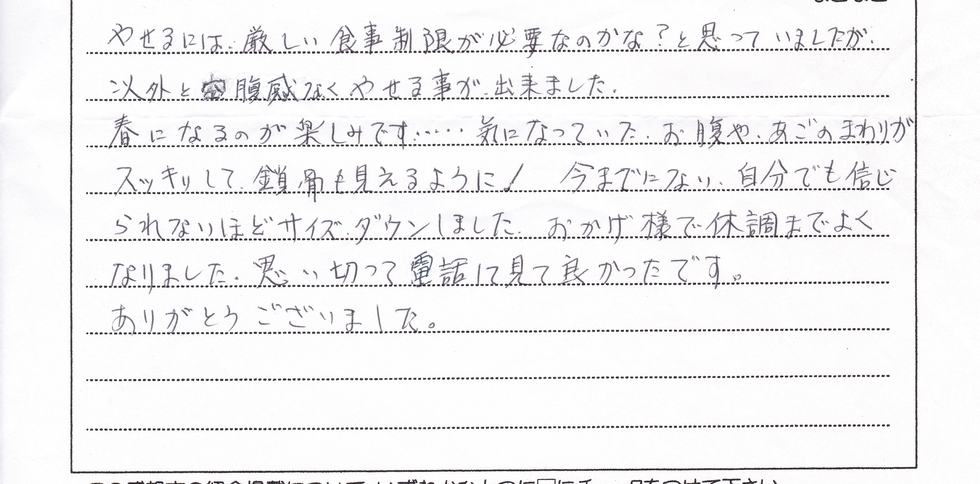 やせるには、厳しい食事制限が必要なのかな?と思っていましたが、
以外と空腹感なくやせる事が出来ました。
春になるのが楽しみです……気になっていた、お腹や、あごのまわりが
スッキリして、鎖骨も見えるように! 今までにない、自分でも信じ
られないほどサイズダウンしました。おかげ様で休調までよく
なりました。思い切って電話して見て良かったです。
ありがとうございました。